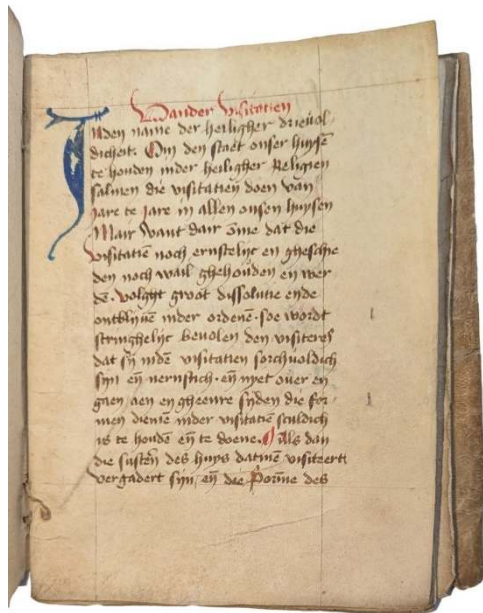 Vander visitatien
Inden name der heiligher drieuol-
dicheit. Om den staet onser huysē
te houden inder heiligher Religien
salmen die visitatien doen van
Jare te Jare in allen onsen huysen
Mair want dair ōme dat die
visitatiē noch ernstelijc en gheschie
den noch wail ghehouden en wer
dē. volght groot dissolutie ende
ontblyuē inder ordenē. soe wordt
stringhelijc beuolen den visiterēs
dat sij indē visitatien sorchuoldich
sijn eñ nernstich. eñ nyet ouer en
gaen aen en gheenre sijden die for-
men diemē inder visitatiē sculdich
is te houdē eñ te doene. Als dan
die sustēn des huys datmē visiteert
vergadert sijn, eñ die Forme des